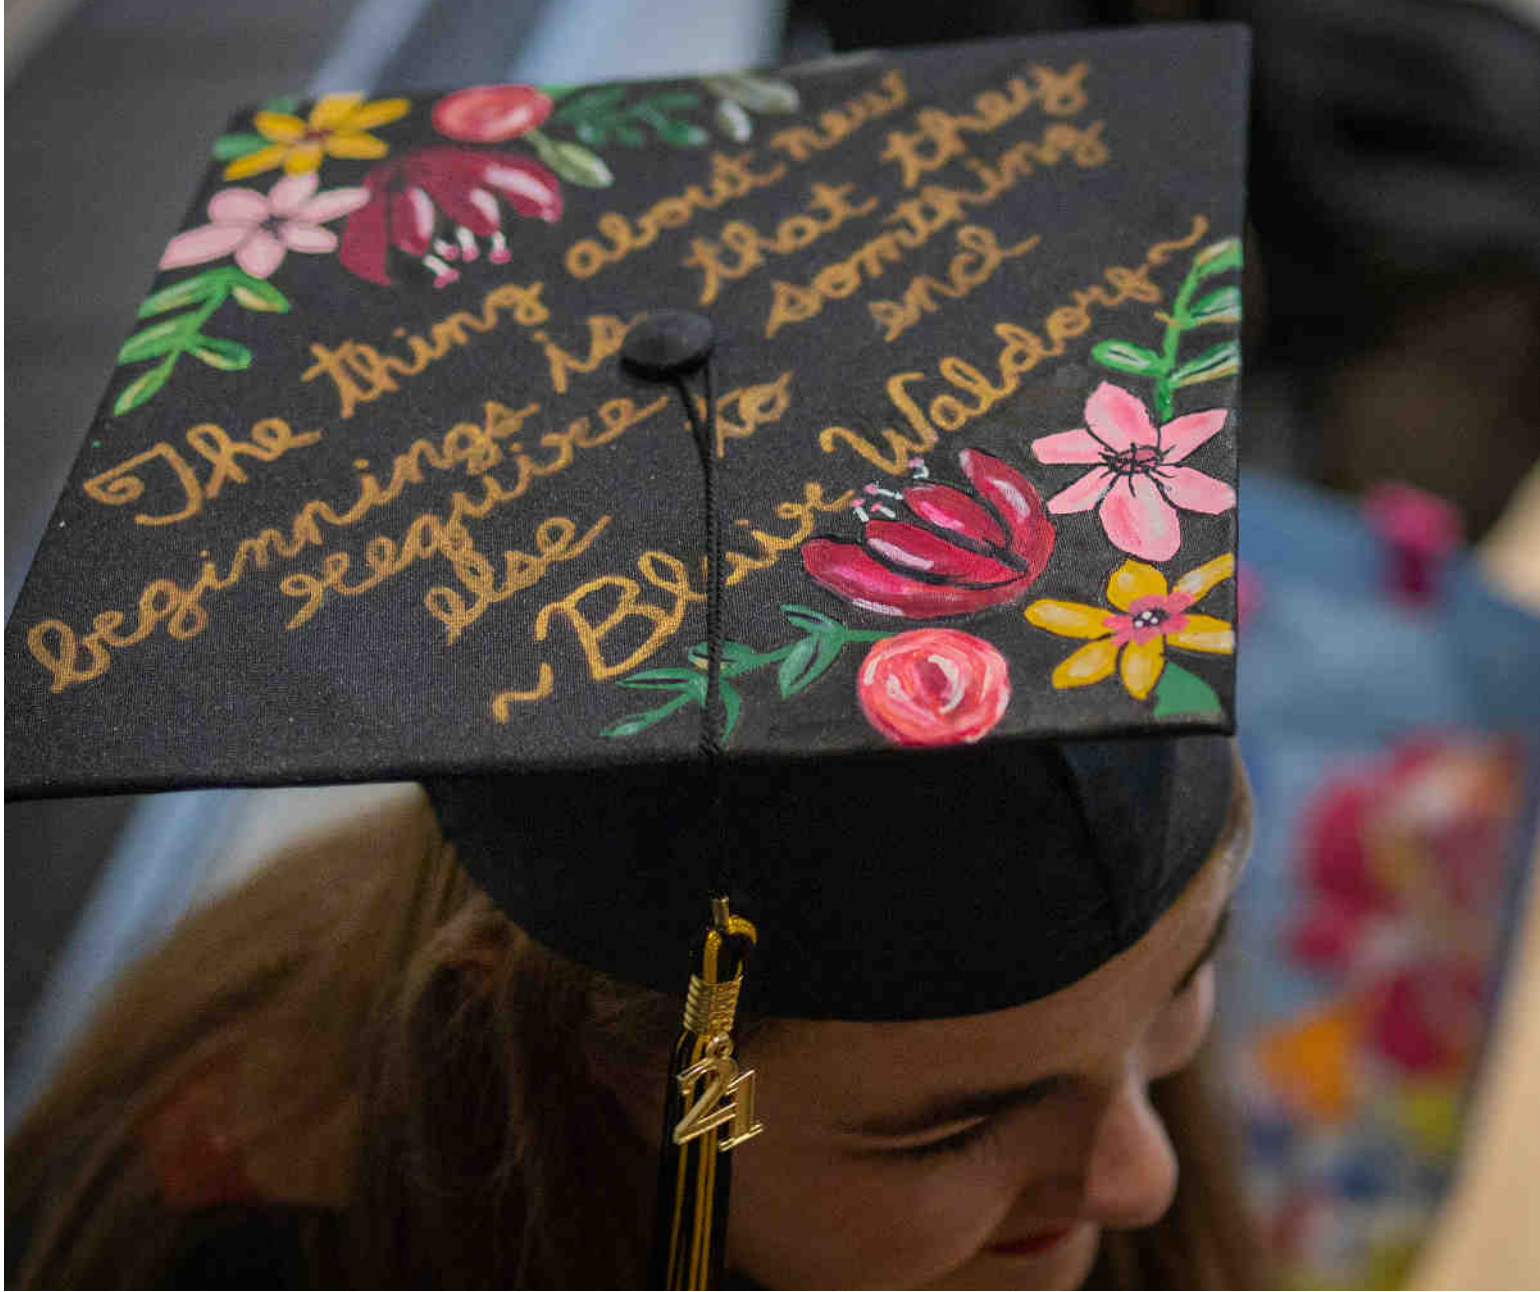 The thing about new
beginnings is that they
require somthing
else to end
~Blair Waldorf~
21